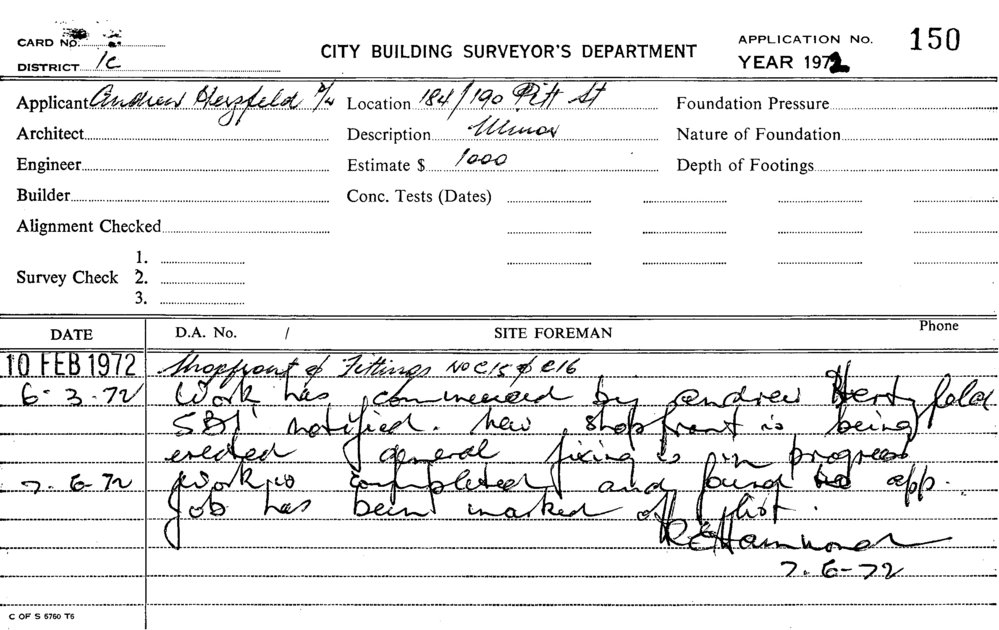 CARD No.
DISTRICT 1C
CITY BUILDING SURVEYOR'S DEPARTMENT
APPLICATION No. 150
YEAR 1972
Applicant Andrew Herzfeld P/L Location 184/190 Pitt St Foundation Pressure
Architect Description Minor Nature of Foundation
Engineer Estimate $ 1000 Depth of Footings
Builder Conc. Tests (Dates)
Alignment Checked
1.
Survey Check 2.
3.
DATE D.A. No. / SITE FOREMAN Phone
10 FEB 1972 Shopfront & Fittings No C15 & C16
6-3-72 Work has commenced by Andrew Hertzfeld
SBI notified. New shopfront is being
erected general fixing is in progress
7.6.72 Work is completed and found as app.
Job has been marked off list.
R E Hammond
7.6-72
C OF S 6760 T6